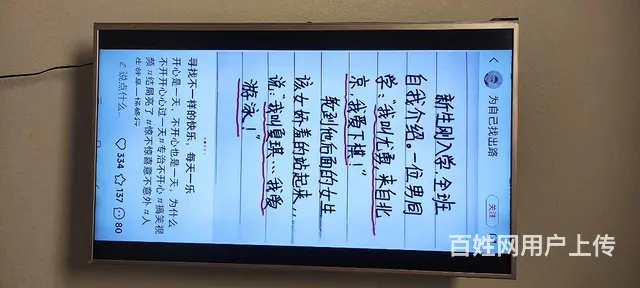 为自己找出路
关注
新生刚入学,全班
自我介绍。一位男同
学:“我叫尤勇,来自北
京,我爱下棋!”
轮到他后面的女生
该女娇羞的站起来,,
说:“我叫夏琪…我爱
游泳!”
寻找不一样的快乐,每天一乐
开心是一天,不开心也是一天,为什么
不开开心心过一天#专治不开心#搞笑视
频#结局亮了#惊不惊喜意不意外#人
说点什么...
334 137 80
百姓网用户上传